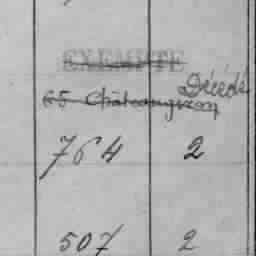 EXEMPTÉ
65 Châteaugiron Décédé
764 2
507 2